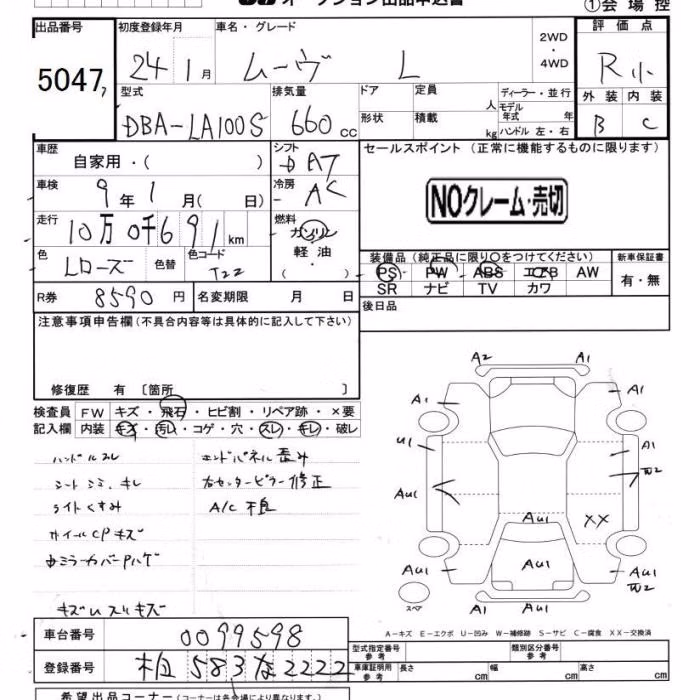 オークション出品申込書
①会場控
出品番号 5047
初度登録年月 24 1月
車名・グレード ムーヴ L
2WD・4WD
評価点 R小
外装 B 内装 C
型式 DBA-LA100S
排気量 660 cc
ドア 定員 人
形状 積載 kg
ディーラー・並行
モデル年式 年
ハンドル 左・右
車歴 自家用・( )
シフト AT
車検 9年1月( 日)
冷房 AC
走行 10万0千691km
燃料 ガソリン・軽油・( )
色 Lローズ 色替
色コード T22
R券 8590円
名変期限 月 日
セールスポイント(正常に機能するものに限ります)
NOクレーム・売切
装備品(純正品に限り○をつけてください)
PS PW ABS エアB AW
SR ナビ TV カワ
新車保証書 有・無
後日品
注意事項申告欄(不具合内容等は具体的に記入して下さい)
修復歴 有 〔箇所 〕
検査員 FW キズ・飛石・ヒビ割・リペア跡・×要
記入欄 内装 キズ・汚レ・コゲ・穴・スレ・キレ・破レ
ハンドルスレ
シートシミ、キレ
ライトくすみ
ホイールCPキズ
ミラーカバーPハゲ
エンドパネル歪み
右センターピラー修正
A/C不良
A2 A1
A1 A1
U1 A1
W2
AU1
AU1 XX
AU1
AU1 AU1
W2
AU1
スペア
A-キズ E-エクボ U-凹み W-補修跡 S-サビ C-腐食 XX-交換済
車台番号 0099598
登録番号 583 な 2222
型式指定番号 参考
類別区分番号 参考
車庫証明用 参考 長さ cm 幅 cm 高さ cm
希望出品コーナー(コーナーは各会場により異なります。)